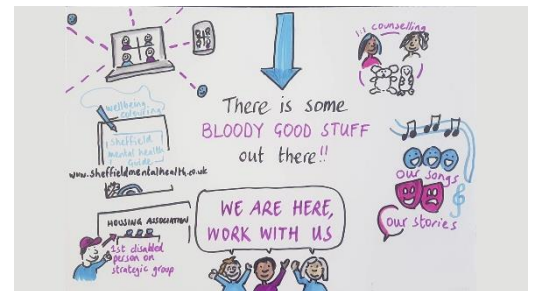 1:1 counselling
wellbeing
colouring
Sheffield
mental health
Guide
www.sheffieldmentalhealth.co.uk
There is some
BLOODY GOOD STUFF
out there!!
our songs
our stories
HOUSING ASSOCIATION
1st disabled
person on
strategic group
WE ARE HERE,
WORK WITH US